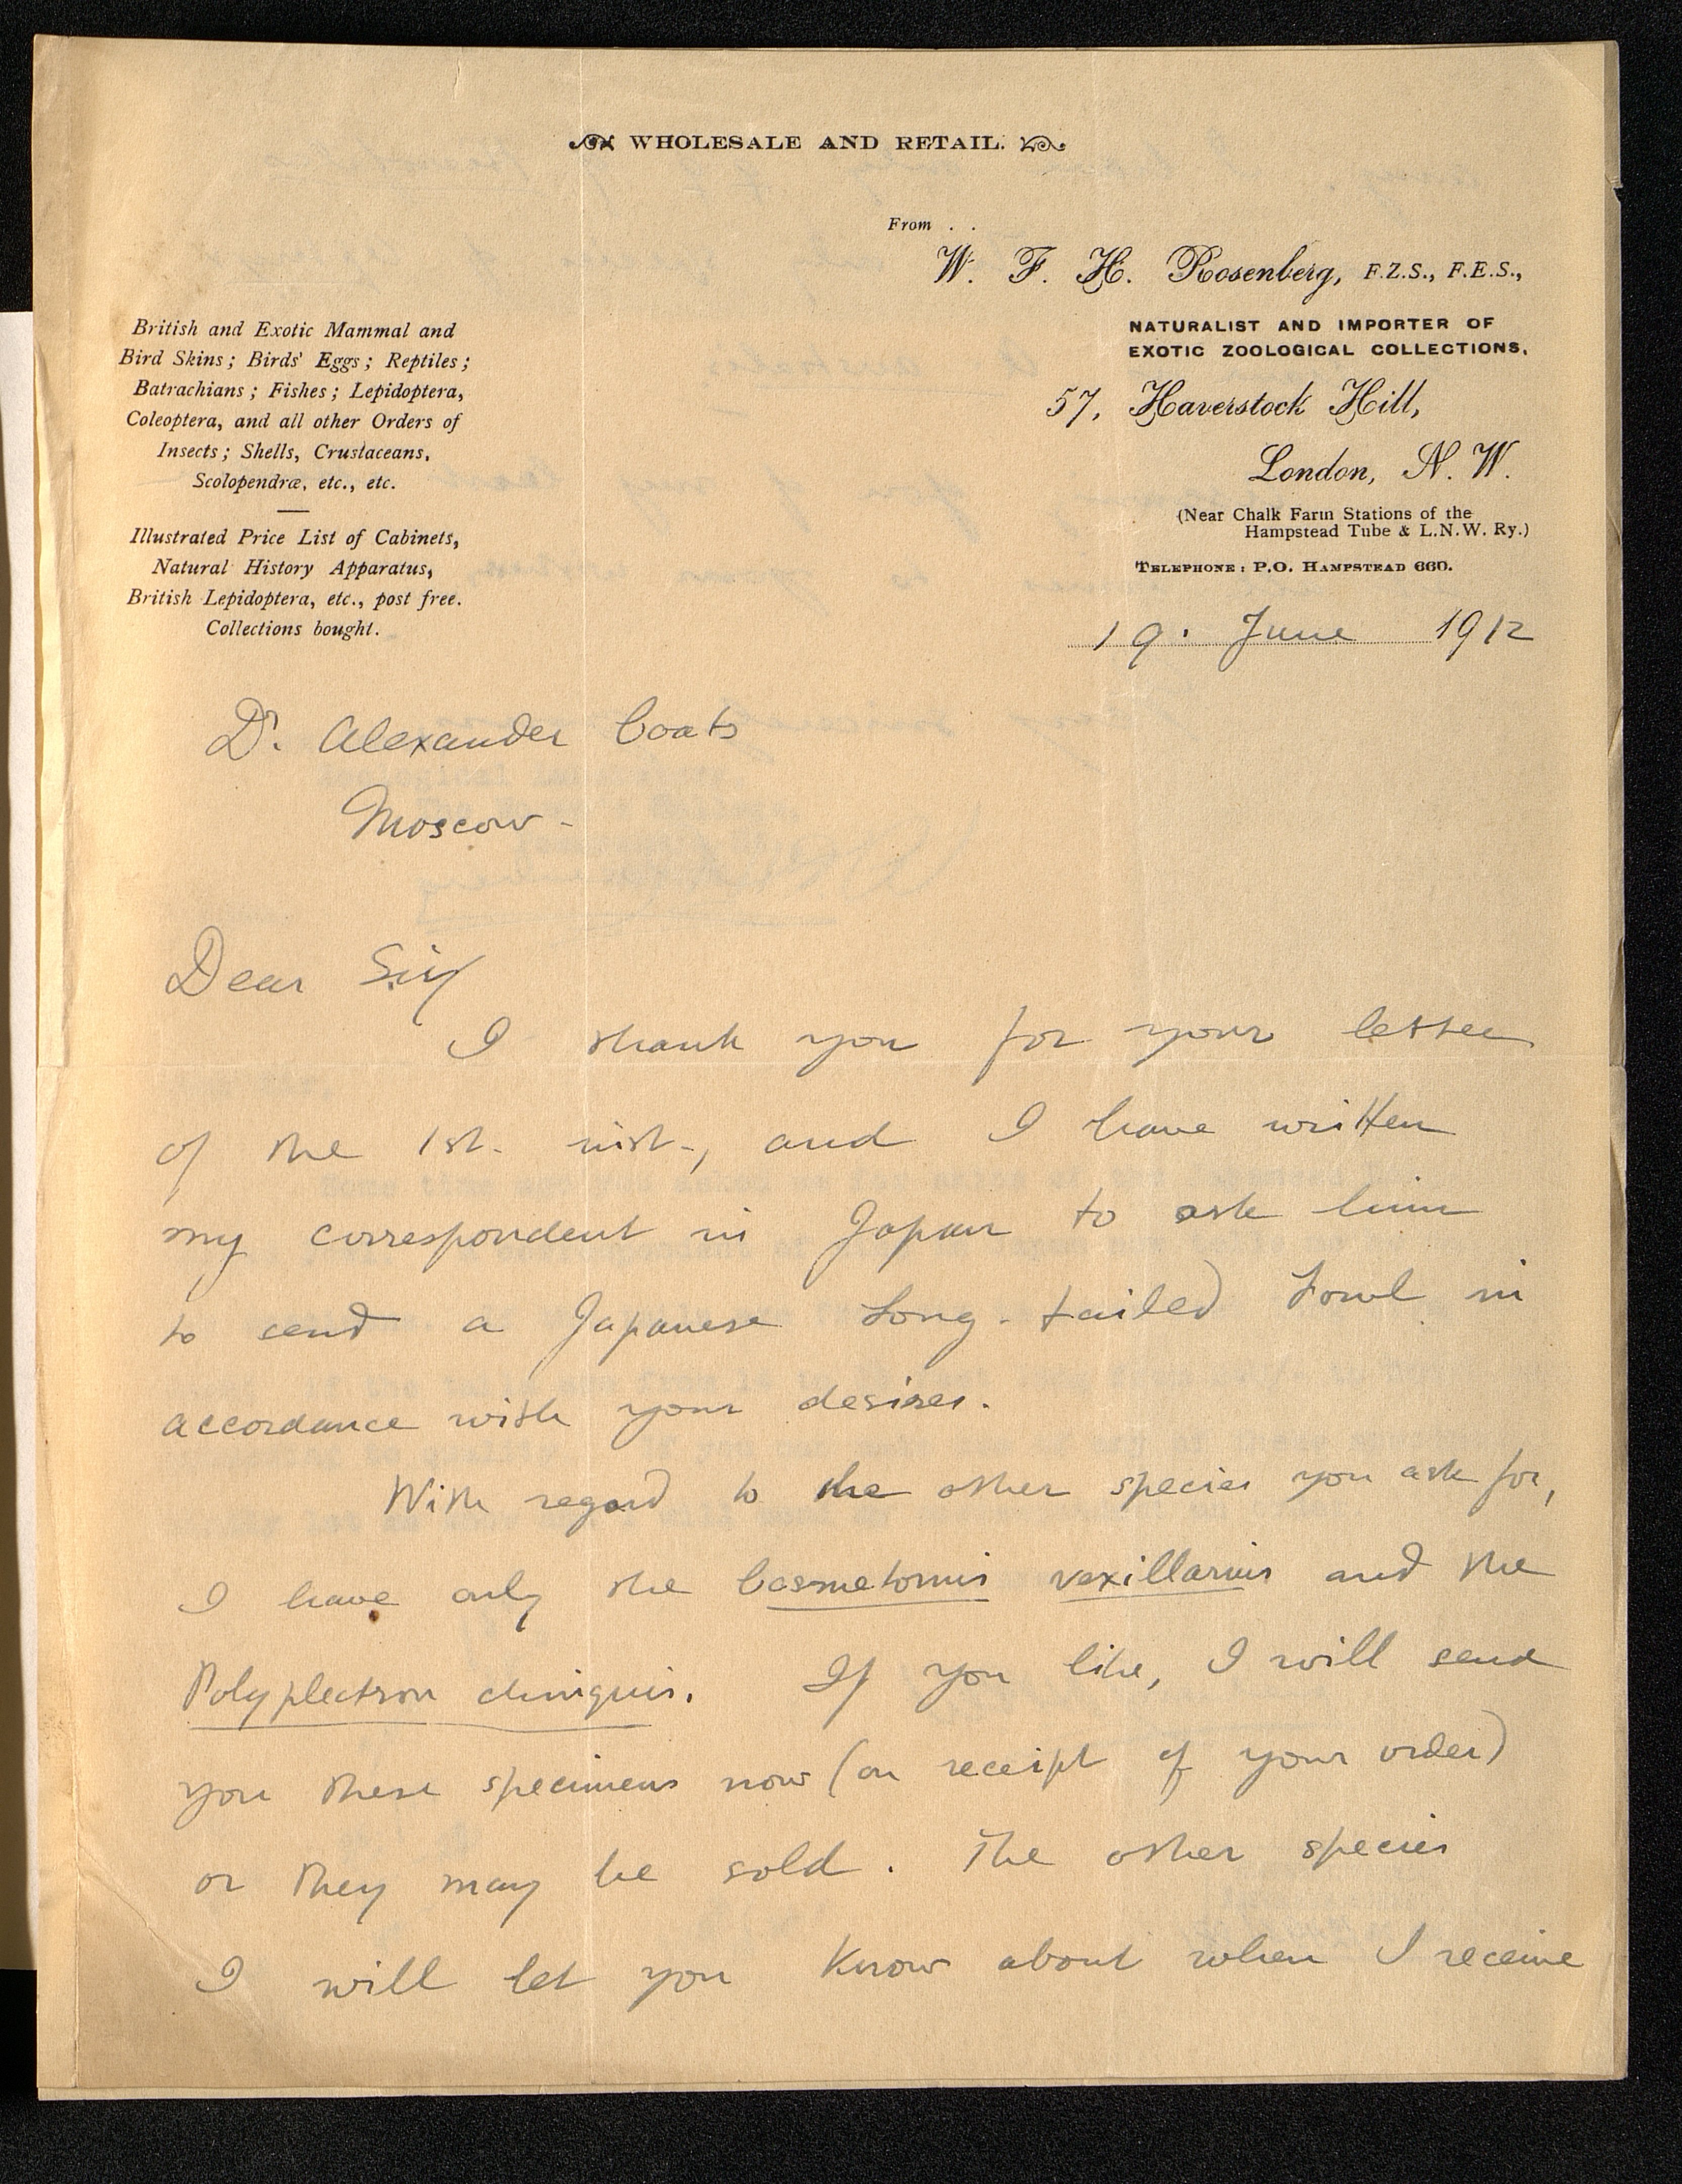 WHOLESALE AND RETAIL.
From . .
W. F. H. Rosenberg, F.Z.S., F.E.S.,
NATURALIST AND IMPORTER OF
EXOTIC ZOOLOGICAL COLLECTIONS,
57, Haverstock Hill,
London, N. W.
(Near Chalk Farm Stations of the
Hampstead Tube & L.N.W. Ry.)
TELEPHONE: P.O. HAMPSTEAD 660.
British and Exotic Mammal and
Bird Skins; Birds' Eggs; Reptiles;
Batrachians; Fishes; Lepidoptera,
Coleoptera, and all other Orders of
Insects; Shells, Crustaceans,
Scolopendræ, etc., etc.
Illustrated Price List of Cabinets,
Natural History Apparatus,
British Lepidoptera, etc., post free.
Collections bought.
19. June 1912
Dr. Alexander Coats
Moscow -
Dear Sir
I thank you for your letter
of the 1st. inst-, and I have written
my correspondent in Japan to ask him
to send a Japanese Long-tailed Fowl in
accordance with your desires.
With regard to the other species you ask for,
I have only the Cosmetornis vexillarius and the
Polyplectron chinquis. If you like, I will send
you these specimens now (on receipt of your order)
or they may be sold. The other species
I will let you know about when I receive